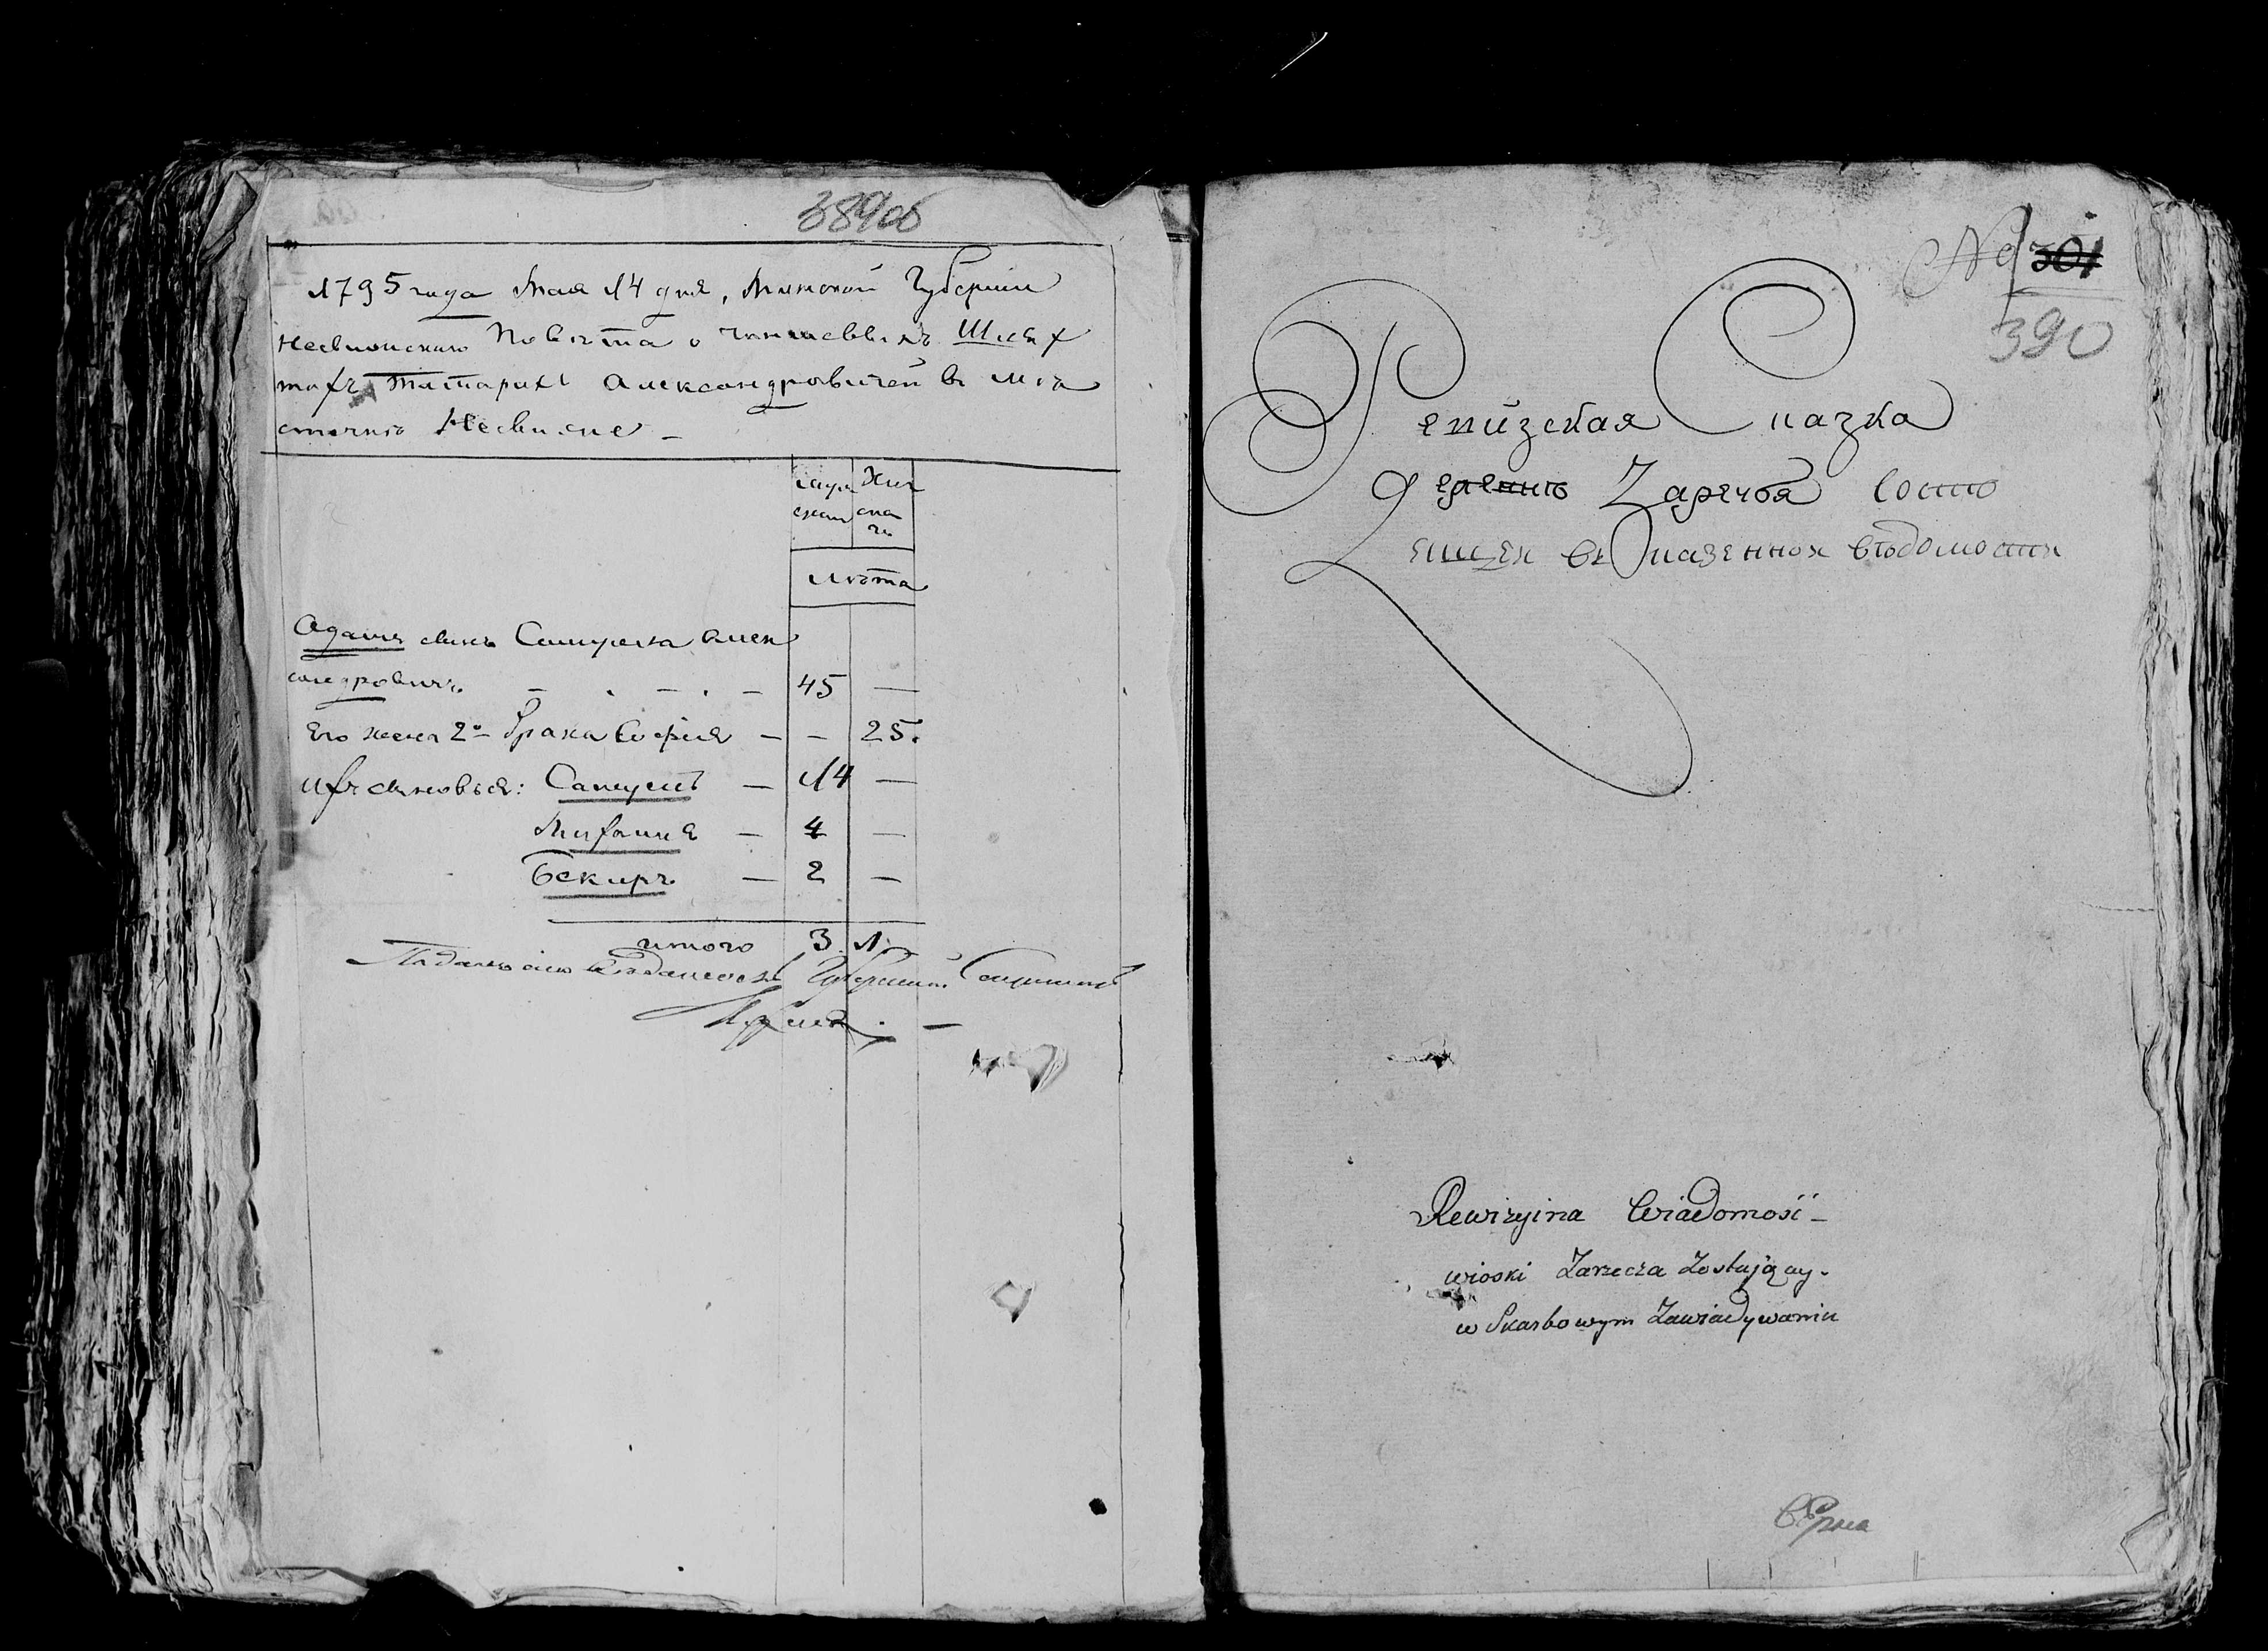 389об
1795 года Мая 14 дня, Минской Губернии
Несвижскаго Повѣта о чиншевыхъ Шлях
тахъ Татарахъ Александровичей въ мѣ
стечкѣ Несвиже –
муж ска Жен ска го
лѣта
Адамъ сынъ Самуела Алек
сандровичъ. 45 —
Его жена 2го брака Софія — — 25.
ихъ сыновья: Самуель — 14 —
Мифтаия — 4 —
Бекиръ — 2 —
итого 3. 1.
Губерніи
№ 301
390
Ревизская Сказка
Деревнѣ Заречья Состо
ящей въ Казенной вѣдомости
Rewizyina Wiadomość –
wioski Zarzecza Zostającey.
w Skarbowym Zawiadywaniu